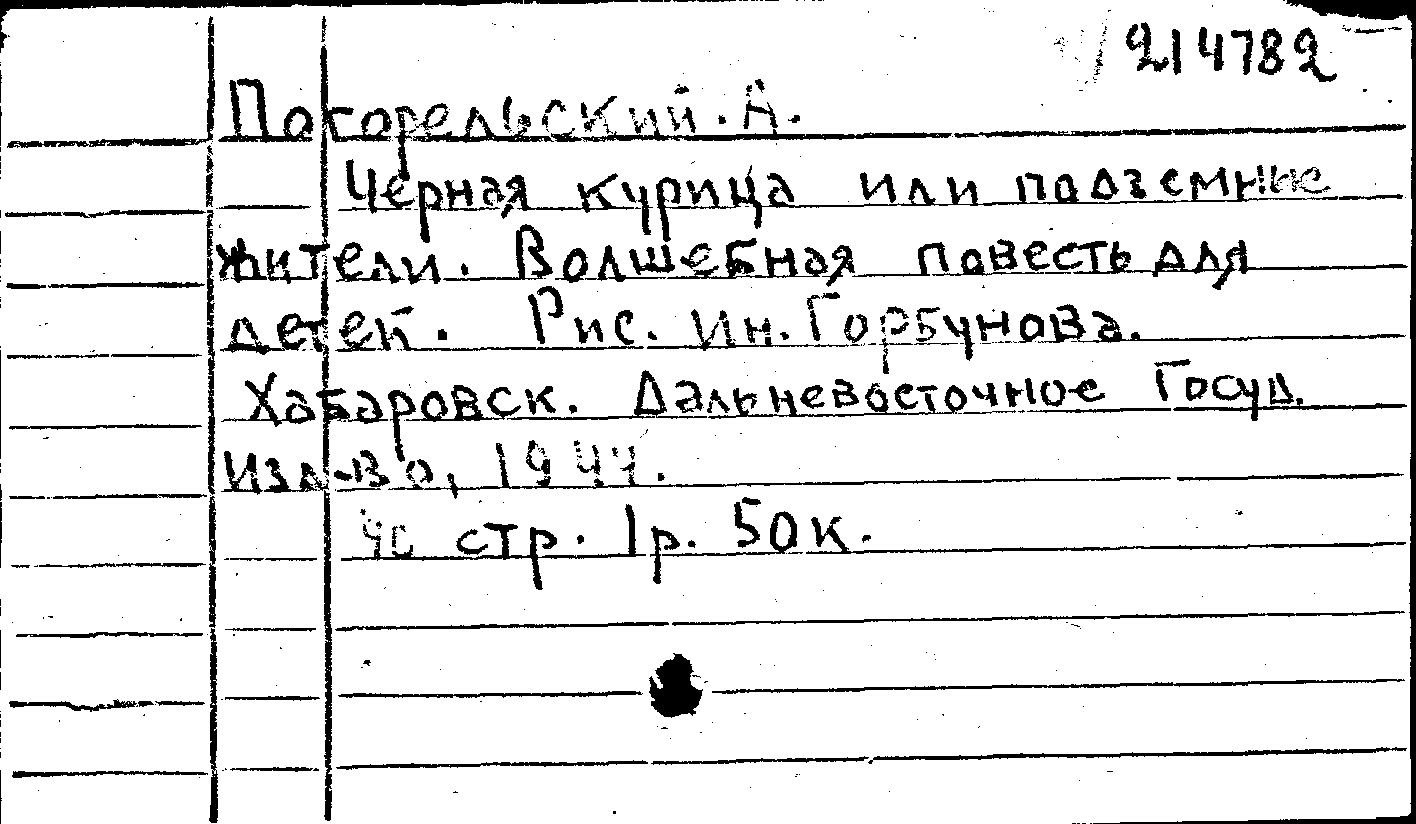 214782
Погорельский. А.
Черная курица или подземные
жители. Волшебная повесть для
детей. Рис. Ин. Горбунова.
Хабаровск. Дальневосточное Госуд.
Изд-во, 1944.
40 стр. 1р. 50к.